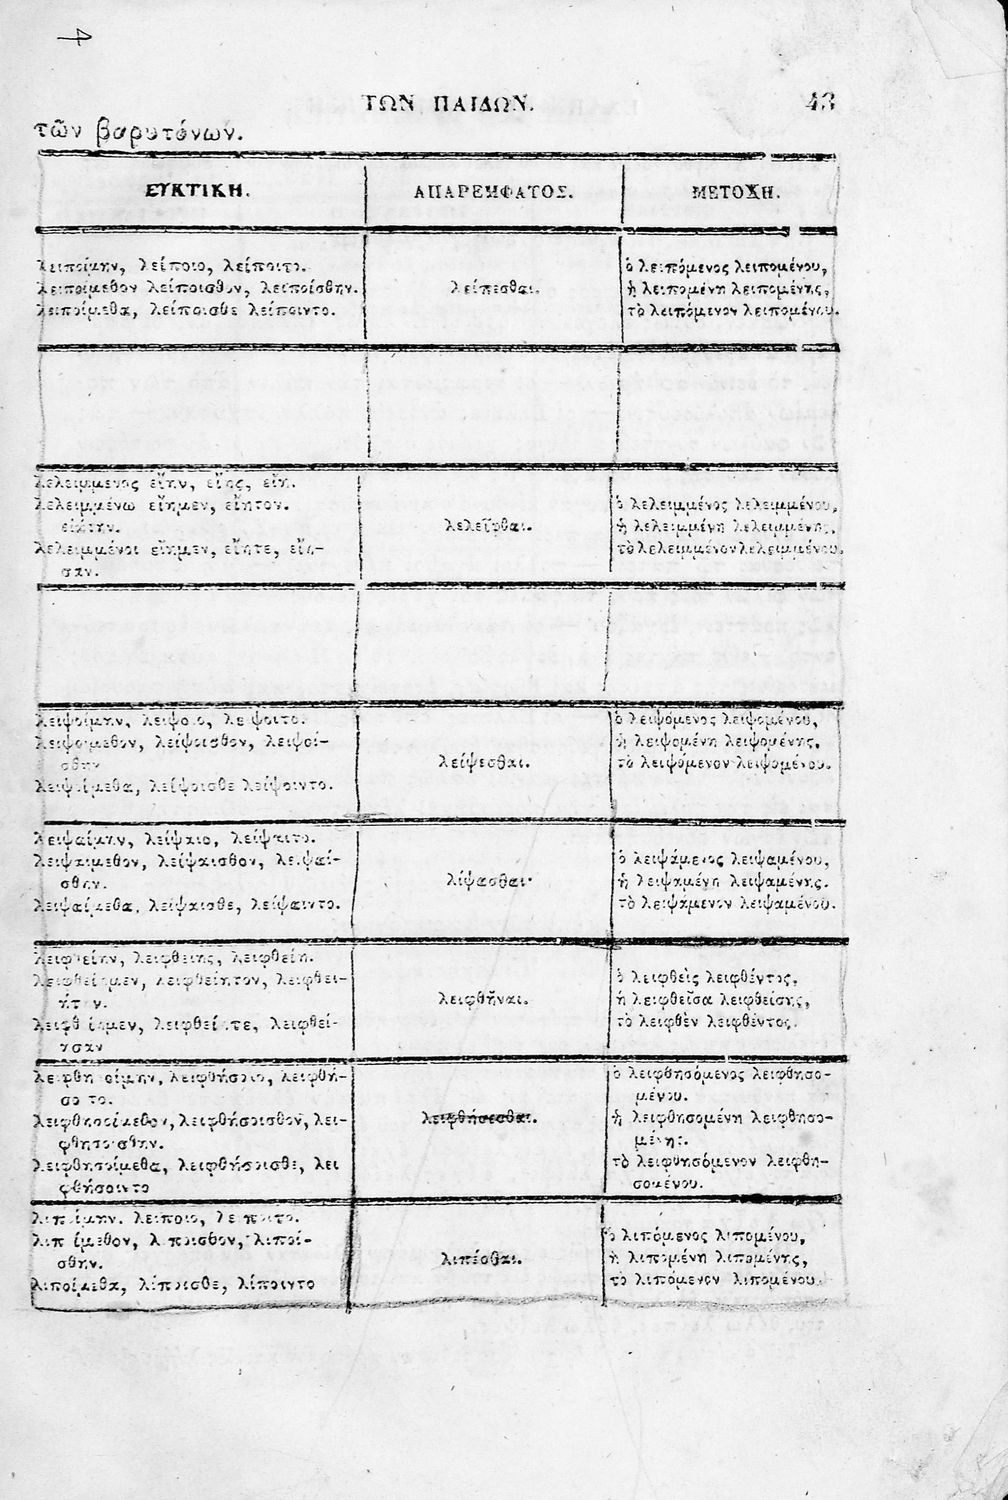 ΤΩΝ ΠΑΙΔΩΝ. 43
τῶν βαρυτόνων.
ΕΥΚΤΙΚΗ. ΑΠΑΡΕΜΦΑΤΟΣ. ΜΕΤΟΧΗ.
λειποίμην, λείποιο, λείποιτο.
λειποίμεθον λείποισθον, λειποίσθην.
λειποίμεθα, λείποισθε λείποιντο.
λείπεσθαι.
ὁ λειπόμενος λειπομένου,
ἡ λειπομένη λειπομένης,
τὸ λειπόμενον λειπομένου.
λελειμμενος εἴην, εἴης, εἴη.
λελειμμένω εἴημεν, εἴητον.
εἰήτην.
λελειμμένοι εἴημεν, εἴητε, εἴη-
σαν.
λελεῖφθαι.
ὁ λελειμμένος λελειμμένου,
ἡ λελειμμένη λελειμμένης,
τὸ λελειμμένον λελειμμένου.
λειψοίμην, λείψοιο, λείψοιτο.
λειψοίμεθον, λείψοισθον, λειψοί-
σθην
λειψοίμεθα, λείψοισθε λείψοιντο.
λείψεσθαι.
ὁ λειψόμενος λειψομένου,
ἡ λειψομένη λειψομένης,
τὸ λειψόμενον λειψομένου.
λειψαίμην, λείψαιο, λείψαιτο.
λειψαίμεθον, λείψαισθον, λειψαί-
σθην.
λειψαίμεθα, λείψαισθε, λείψαιντο.
λίψασθαι·
ὁ λειψάμενος λειψαμένου,
ἡ λειψαμένη λειψαμένης.
τὸ λειψάμενον λειψαμένου.
λειφθείην, λειφθείης, λειφθείη.
λειφθείημεν, λειφθείητον, λειφθει-
ήτην.
λειφθείημεν, λειφθείητε, λειφθεί-
ησαν
λειφθῆναι.
ὁ λειφθεὶς λειφθέντος,
ἡ λειφθεῖσα λειφθείσης,
τὸ λειφθὲν λειφθέντος.
λειφθησοίμην, λειφθήσοιο, λειφθή-
σοιτο.
λειφθησοίμεθον, λειφθήσοισθον, λει-
φθησοίσθην.
λειφθησοίμεθα, λειφθήσοισθε, λει
φθήσοιντο
λειφθήσεσθαι.
ὁ λειφθησόμενος λειφθησο-
μένου.
ἡ λειφθησομένη λειφθησο-
μένης.
τὸ λειφθησόμενον λειφθη-
σομένου.
λιποίμην. λείποιο, λείποιτο.
λιποίμεθον, λίποισθον, λιποί-
σθην.
λιποίμεθα, λίποισθε, λίποιντο
λιπέσθαι.
ὁ λιπόμενος λιπομένου,
ἡ λιπομένη λιπομένης,
τὸ λιπόμενον λιπομένου.